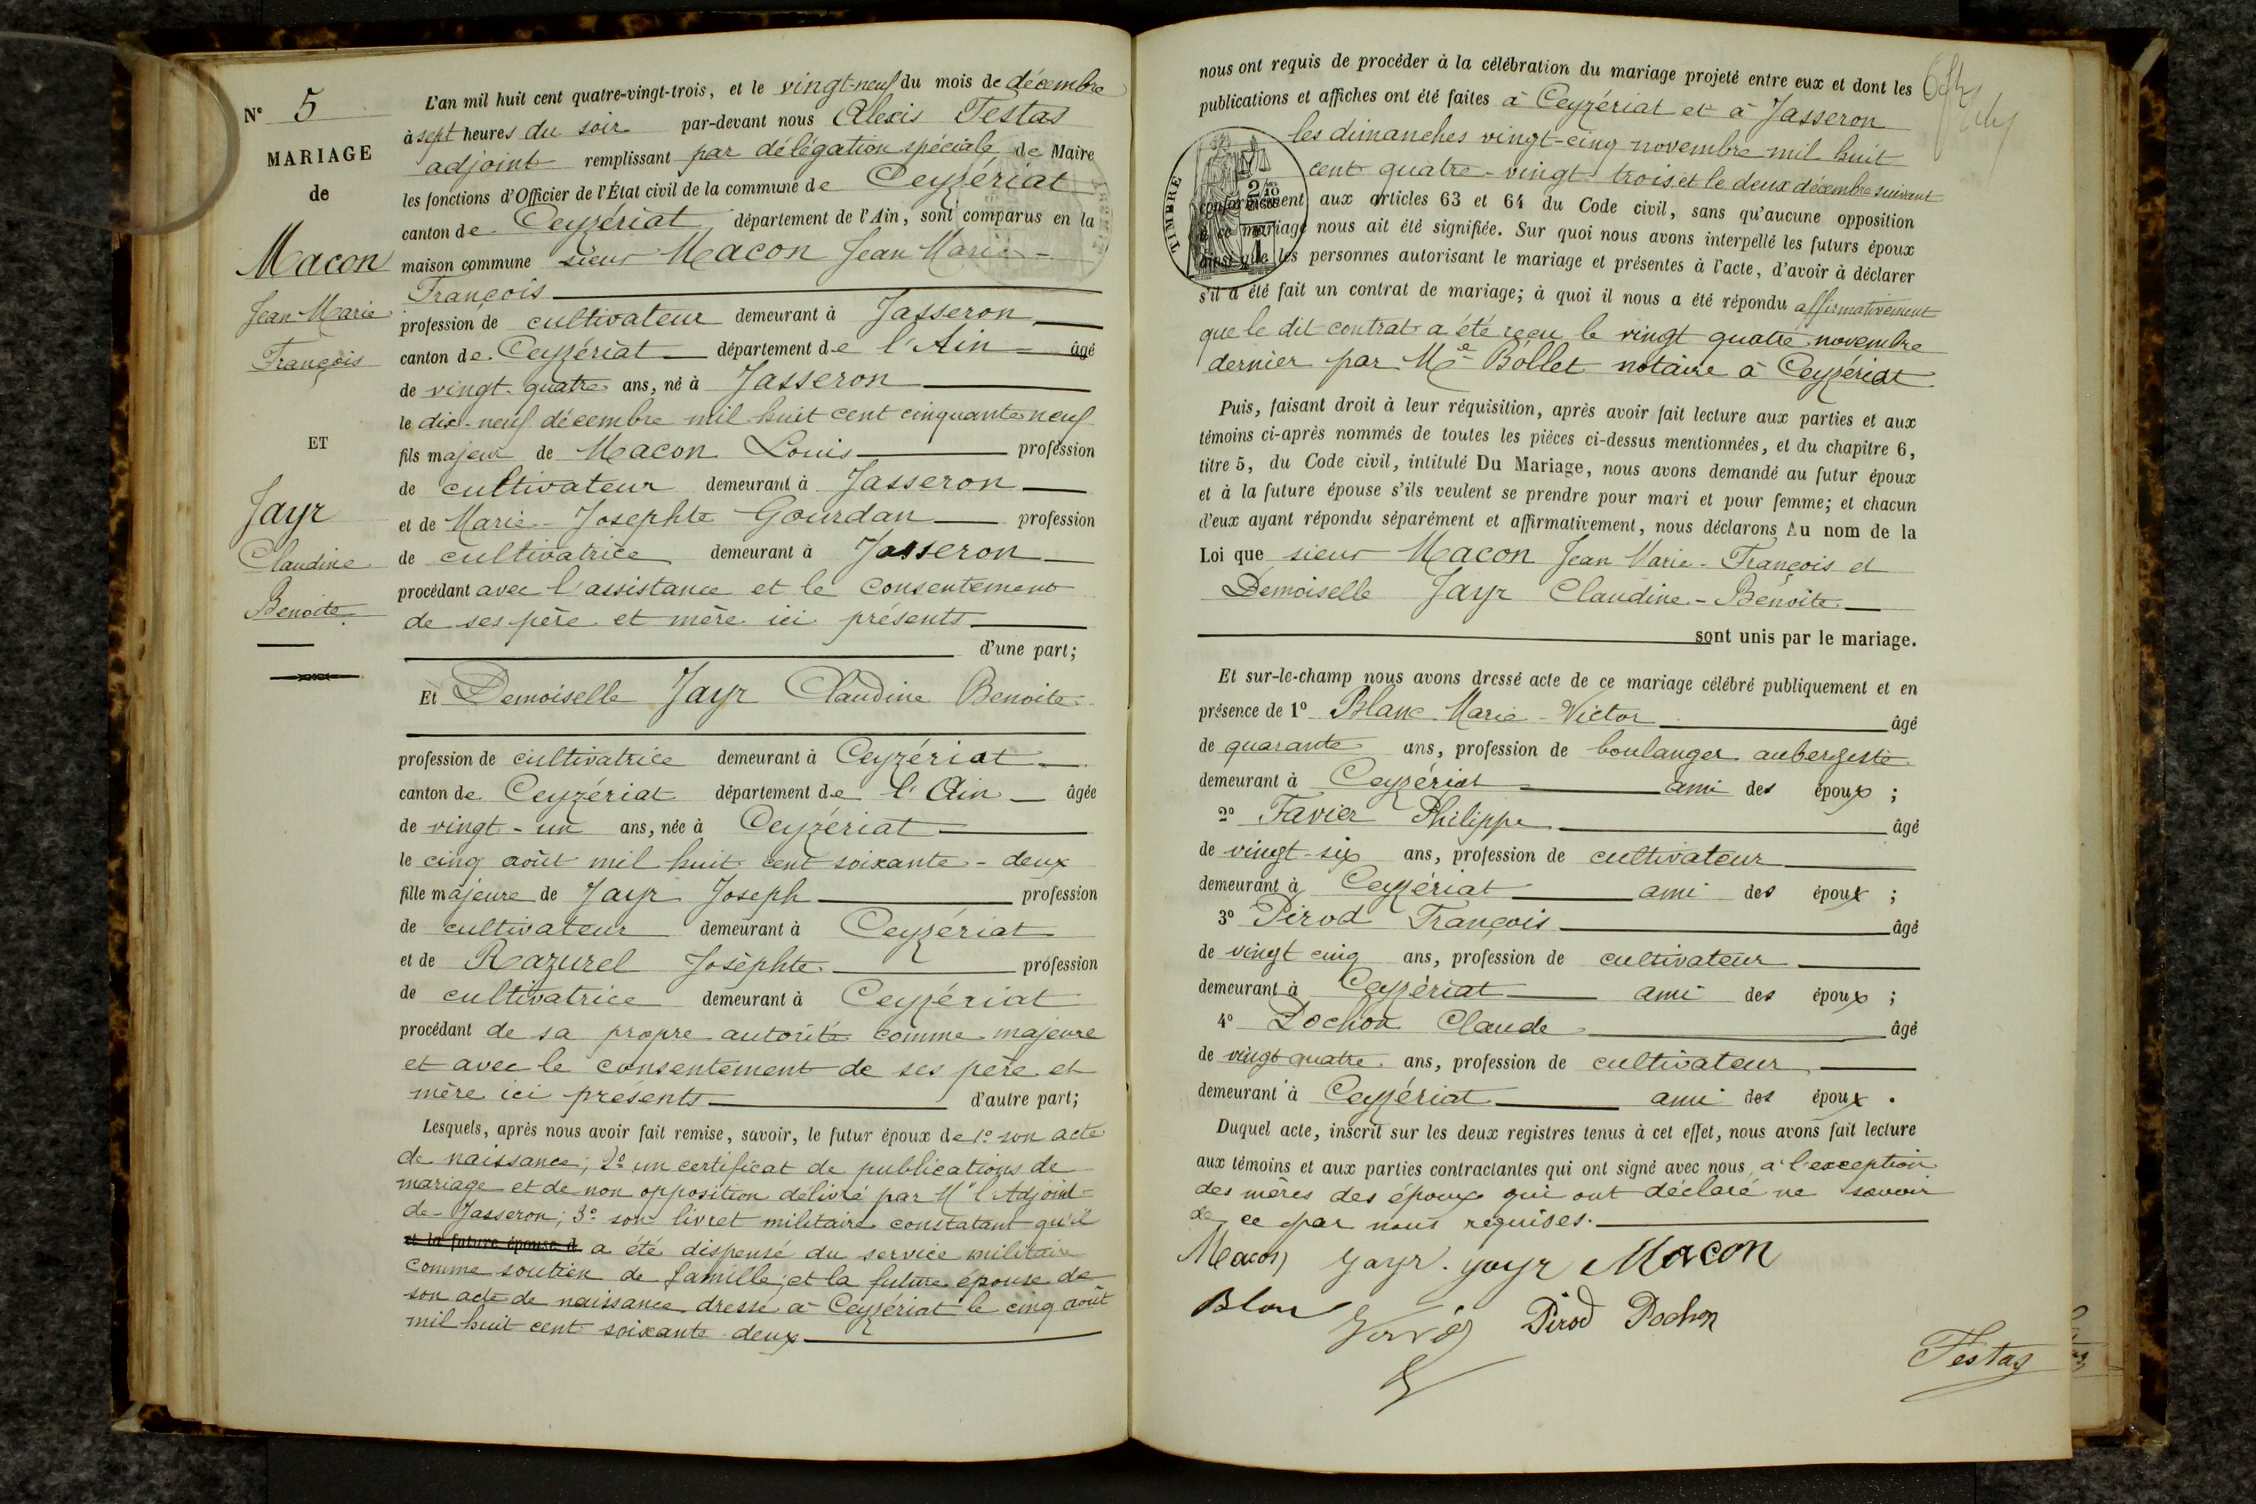 N° 5
MARIAGE
de
Macon
Jean Marie
François
ET
Jayr
Claudine
Benoite
L'an mil huit cent quatre-vingt-trois, et le vingt-neuf du mois de décembre
à sept heures du soir par-devant nous Alexis Festas
adjoint remplissant par délégation spéciale de Maire
les fonctions d'Officier de l'État civil de la commune de Ceyzériat
canton de Ceyzériat département de l'Ain, sont comparus en la
maison commune sieur Macon Jean Marie
François
profession de cultivateur demeurant à Jasseron
canton de Ceyzériat département de l'Ain âgé
de vingt-quatre ans, né à Jasseron
le dix-neuf décembre mil huit cent cinquante neuf
fils majeur de Macon Louis profession
de cultivateur demeurant à Jasseron
et de Marie-Josephte Gourdan profession
de cultivatrice demeurant à Jasseron
procédant avec l'assistance et le consentement
de ses père et mère ici présents
d'une part;
Et Demoiselle Jayr Claudine Benoite
profession de cultivatrice demeurant à Ceyzériat
canton de Ceyzériat département de l'Ain âgée
de vingt-un ans, née à Ceyzériat
le cinq août mil huit cent soixante-deux
fille majeure de Jayr Joseph profession
de cultivateur demeurant à Ceyzériat
et de Razurel Josèphte profession
de cultivatrice demeurant à Ceyzériat
procédant de sa propre autorité comme majeure
et avec le consentement de ses père et
mère ici présents d'autre part;
Lesquels, après nous avoir fait remise, savoir, le futur époux de 1° son acte
de naissance; 2° un certificat de publications de
mariage et de non opposition délivré par Mr l'Adjoint
de Jasseron; 3° son livret militaire constatant qu'il
et la future épouse d a été dispensé du service militaire
comme soutien de famille; et la future épouse de
son acte de naissance dressé à Ceyzériat le cinq août
mil huit cent soixante deux
nous ont requis de procéder à la célébration du mariage projeté entre eux et dont les
publications et affiches ont été faites à Ceyzériat et à Jasseron
les dimanches vingt-cinq novembre mil huit
cent quatre-vingt trois et le deux décembre suivant
TIMBRE
conformément aux articles 63 et 64 du Code civil, sans qu'aucune opposition
à ce mariage nous ait été signifiée. Sur quoi nous avons interpellé les futurs époux
ainsi que les personnes autorisant le mariage et présentes à l'acte, d'avoir à déclarer
s'il a été fait un contrat de mariage; à quoi il nous a été répondu affirmativement
que le dit contrat a été reçu le vingt quatre novembre
dernier par Me Bollet notaire à Ceyzériat
Puis, faisant droit à leur réquisition, après avoir fait lecture aux parties et aux
témoins ci-après nommés de toutes les pièces ci-dessus mentionnées, et du chapitre 6,
titre 5, du Code civil, intitulé Du Mariage, nous avons demandé au futur époux
et à la future épouse s'ils veulent se prendre pour mari et pour femme; et chacun
d'eux ayant répondu séparément et affirmativement, nous déclarons Au nom de la
Loi que sieur Macon Jean Marie-François et
Demoiselle Jayr Claudine-Benoite
sont unis par le mariage.
Et sur-le-champ nous avons dressé acte de ce mariage célébré publiquement et en
présence de 1° Blanc Marie-Victor âgé
de quarante ans, profession de boulanger aubergiste
demeurant à Ceyzériat ami des époux;
2° Favier Philippe âgé
de vingt-six ans, profession de cultivateur
demeurant à Ceyzériat ami des époux;
3° Pirod François âgé
de vingt cinq ans, profession de cultivateur
demeurant à Ceyzériat ami des époux;
4° Pochon Claude âgé
de vingt quatre ans, profession de cultivateur
demeurant à Ceyzériat ami des époux.
Duquel acte, inscrit sur les deux registres tenus à cet effet, nous avons fait lecture
aux témoins et aux parties contractantes qui ont signé avec nous à l'exception
des mères des époux qui ont déclaré ne savoir
de ce par nous requises.
Macon Jayr. Jayr Macon
Blanc Pirod Pochon
Festas